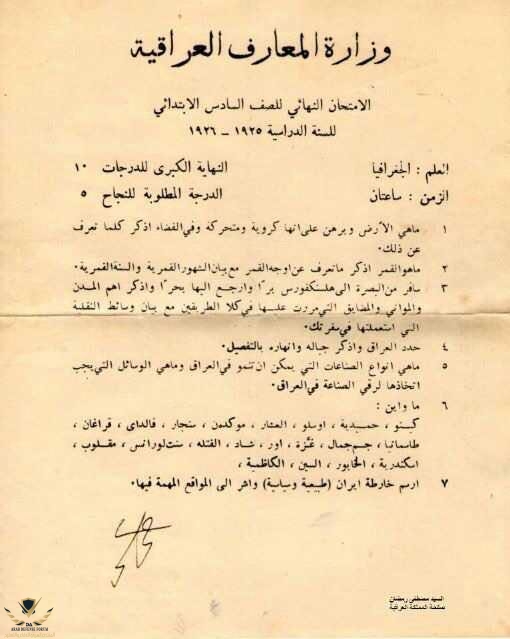 وزارة المعارف العراقية
الامتحان النهائي للصف السادس الابتدائي
للسنة الدراسية ١٩٢٥ – ١٩٢٦
العلم : الجغرافيا النهاية الكبرى للدرجات ١٠
الزمن : ساعتان الدرجة المطلوبة للنجاح ٥
١ ماهي الأرض وبرهن على انها كروية ومتحركة وفي الفضاء اذكر كلما تعرف
عن ذلك.
٢ ماهو القمر اذكر ماتعرف عن اوجه القمر مع بيان الشهور القمرية والسنة القمرية.
٣ سافر من البصرة الى هلسنكفورس برًا وارجع اليها بحرًا واذكر اهم المدن
والمواني والمضايق التي مررت عليها في كلا الطريقين مع بيان وسائط النقلية
التي استعملتها في سفرتك.
٤ حدد العراق واذكر جباله وانهاره بالتفصيل.
٥ ماهي انواع الصناعات التي يمكن ان تنمو في العراق وماهي الوسائل التي يجب
اتخاذها لرقي الصناعة في العراق.
٦ ما واين :
كيتو ، حميدية ، اوسلو ، العشار ، موكدن ، سنجار ، فالداى ، قراغان ،
طاسمانيا ، جم جمال ، غزة ، اور ، شاد ، القتله ، سنت لورانس ، مقلوب ،
اسكندرية ، الخابور ، السين ، الكاظمية ،
٧ ارسم خارطة ايران (طبيعية وسياسية) واشر الى المواقع المهمة فيها.
السيد مصطفى رمضان
صفحة المملكة العراقية
DA
ARAB DEFENSE FORUM